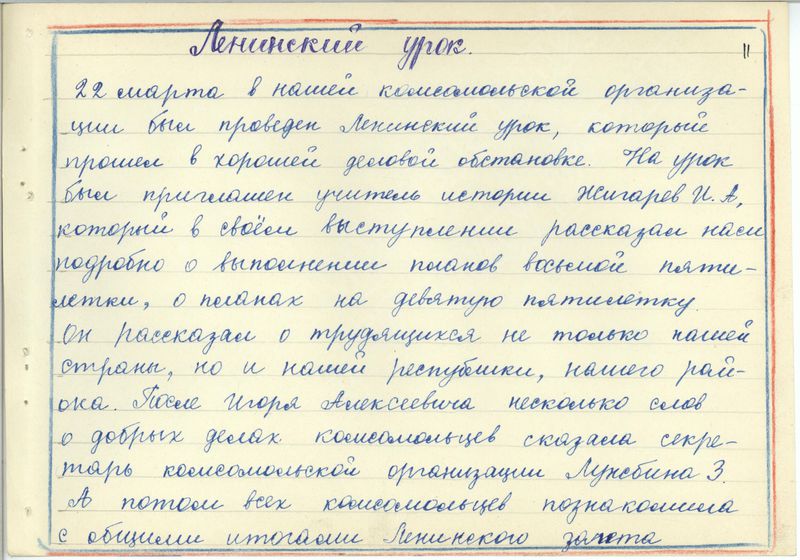 Ленинский урок.
11
22 марта в нашей комсомольской организа-
ции был проведен Ленинский урок, который
прошел в хорошей деловой обстановке. На урок
был приглашен учитель истории Жигарев И.А,
который в своём выступлении рассказал нам
подробно о выполнении планов восьмой пяти-
летки, о планах на девятую пятилетку.
Он рассказал о трудящихся не только нашей
страны, но и нашей республики, нашего рай-
она. После Игоря Алексеевича несколько слов
о добрых делах комсомольцев сказала секре-
тарь комсомольской организации Лужбина З.
А потом всех комсомольцев познакомила
с общими итогами Ленинского зачета